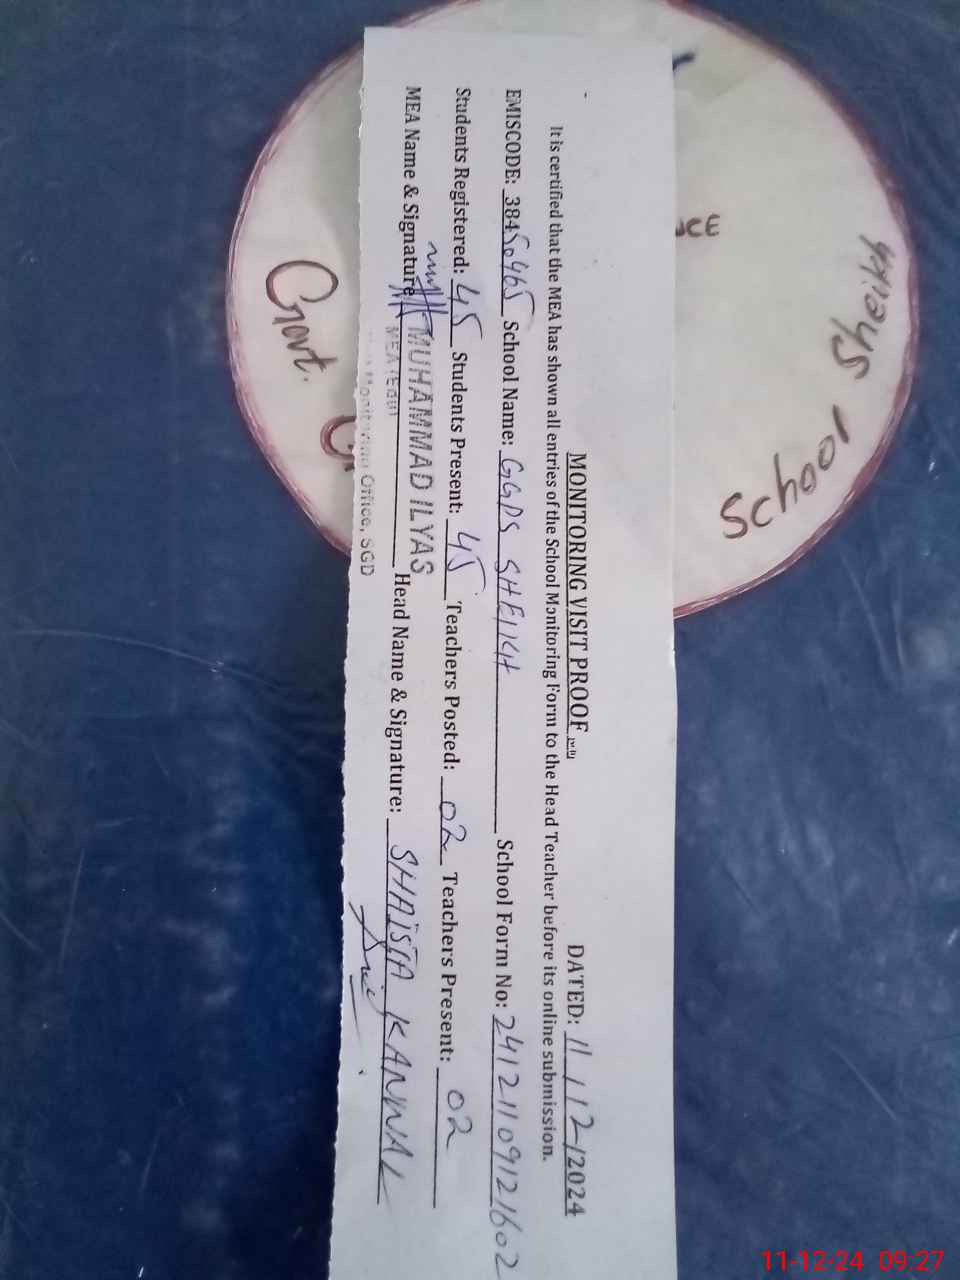 MONITORING VISIT PROOF DATED: 11/12/2024
It is certified that the MEA has shown all entries of the School Monitoring Form to the Head Teacher before its online submission.
EMISCODE: 38450465 School Name: GGPS SHEIKH School Form No: 24121109121602
Students Registered: 45 Students Present: 45 Teachers Posted: 02 Teachers Present: 02
MEA Name & Signature: MUHAMMAD ILYAS Head Name & Signature: SHAISTA KANWAL
MEA (Edu)
Monitoring Office, SGD
Govt.
School
11-12-24 09:27